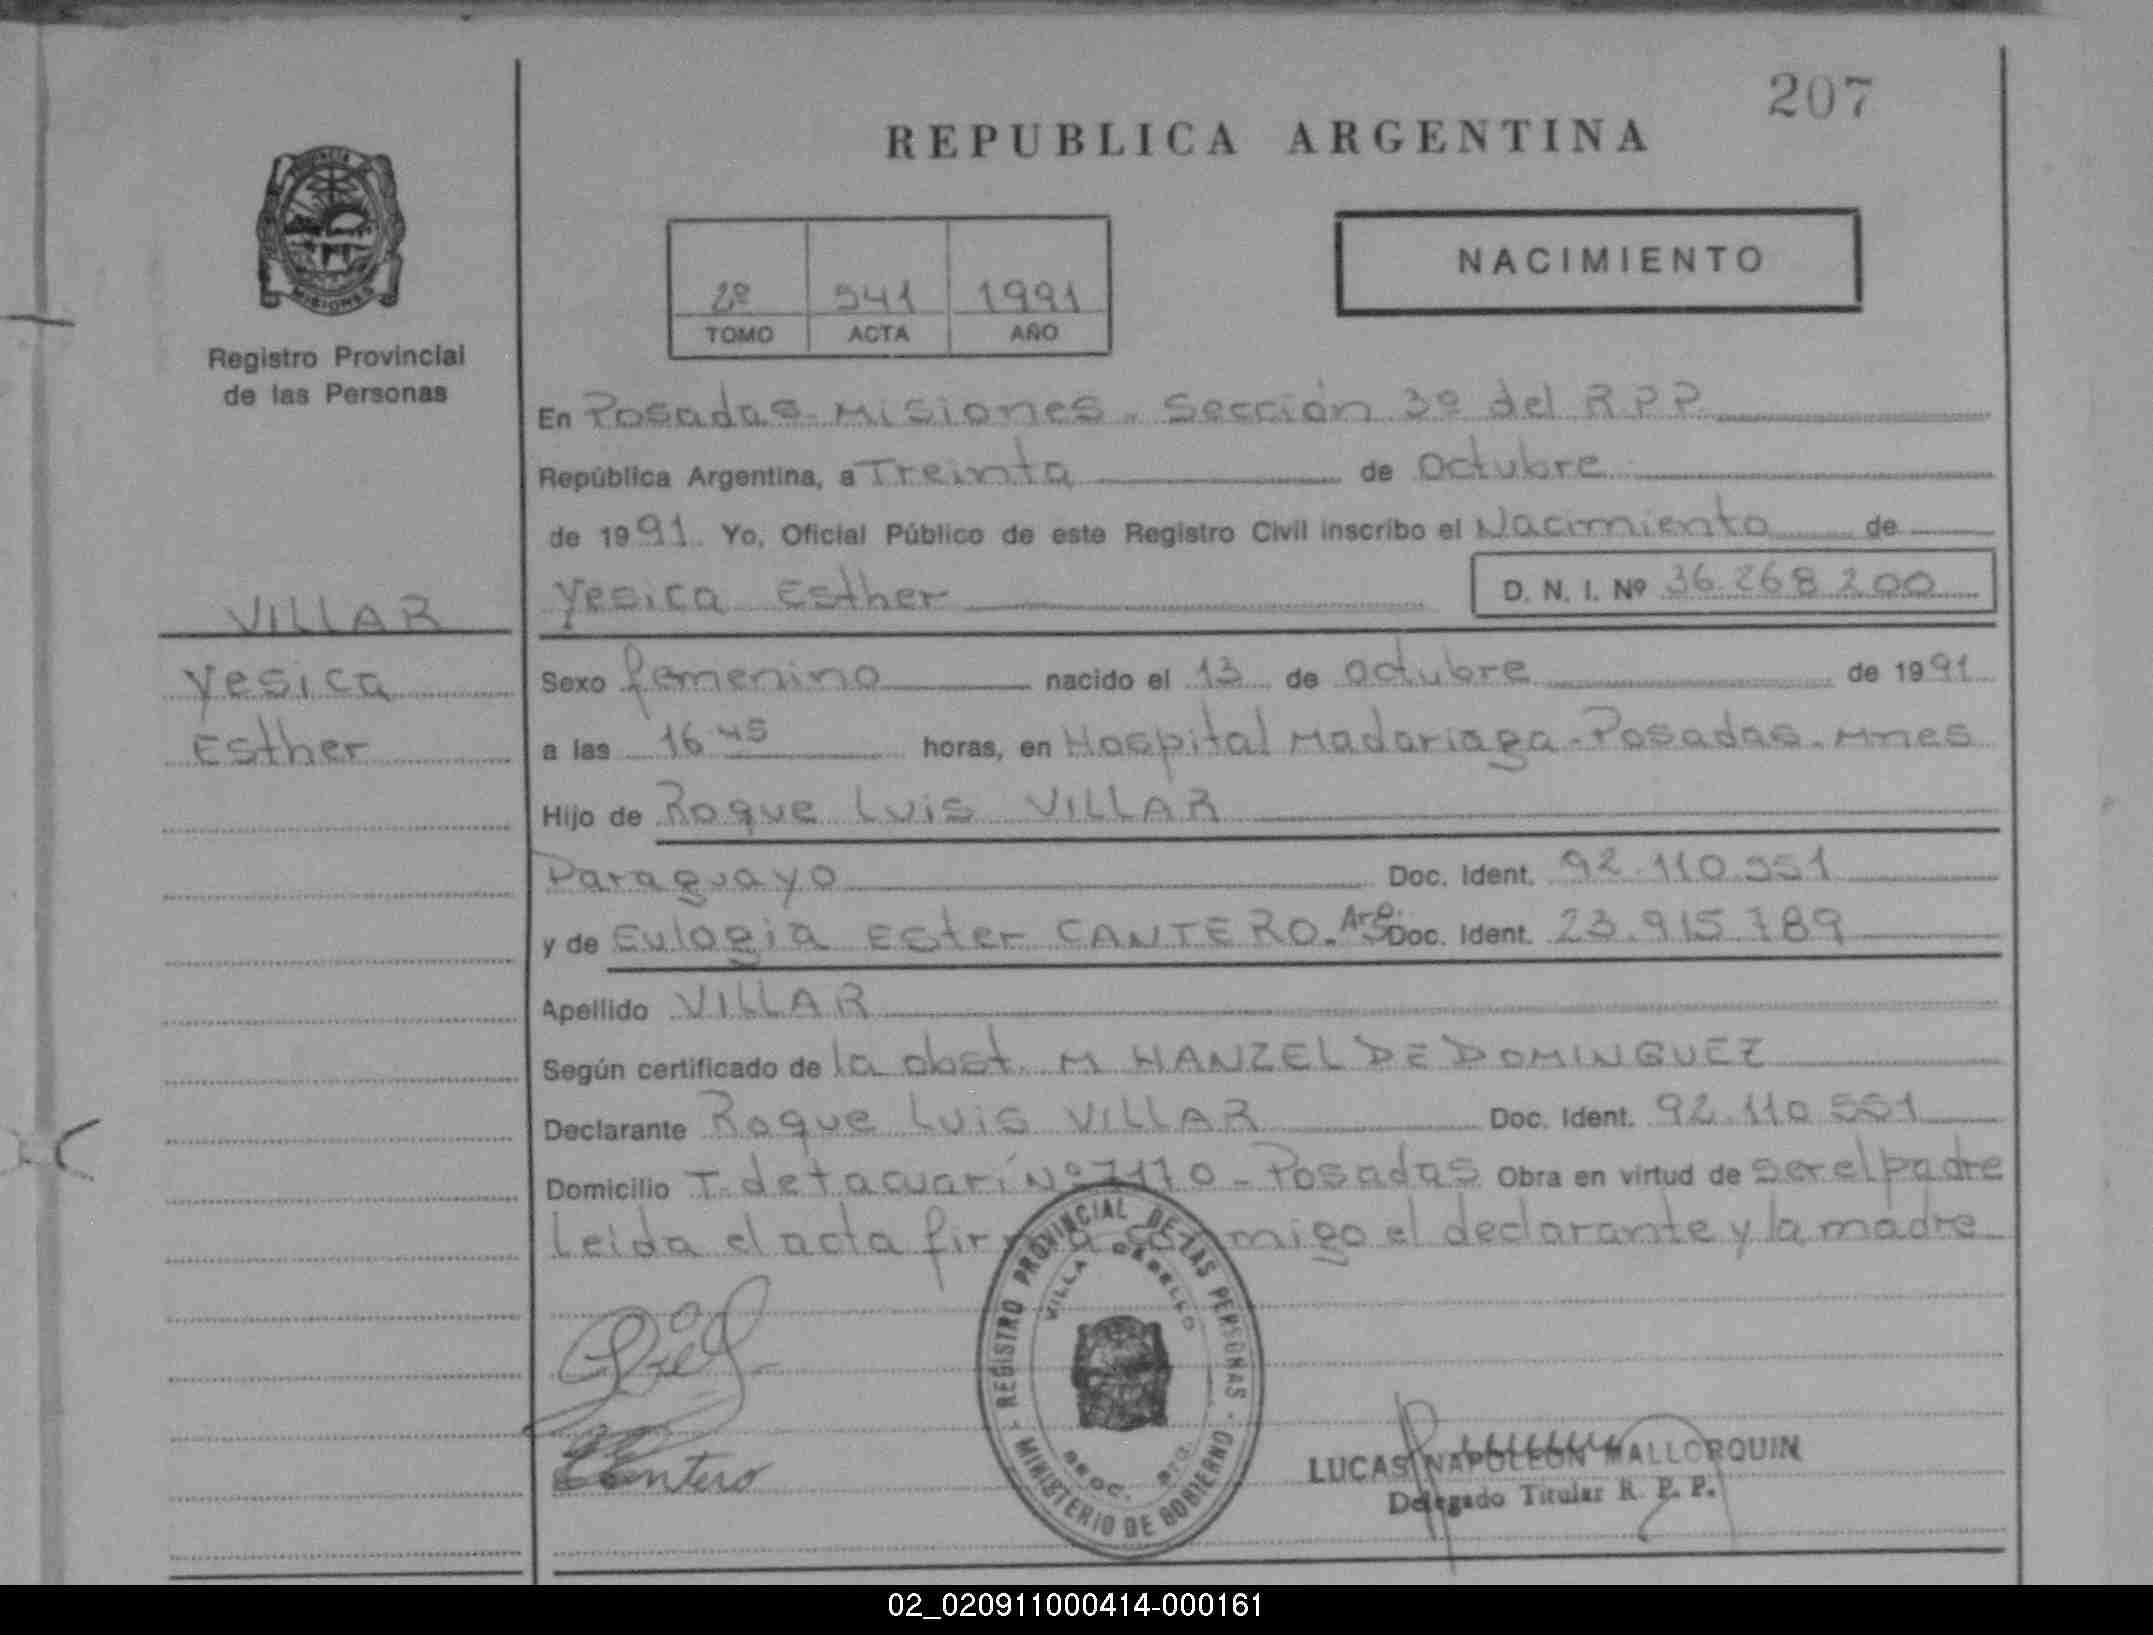 207
REPUBLICA ARGENTINA
NACIMIENTO
2º 541 1991
TOMO ACTA AÑO
MISIONES
Registro Provincial
de las Personas
En Posadas - Misiones - Sección 3º del R.P.P.
República Argentina, a Treinta de octubre
de 1991. Yo, Oficial Público de este Registro Civil inscribo el Nacimiento de
Yesica Esther D. N. I. Nº 36.268.200
VILLAR
Yesica
Esther
Sexo femenino nacido el 13 de octubre de 1991
a las 16 45 horas, en Hospital Madariaga - Posadas - Mnes
Hijo de Roque Luis VILLAR
Paraguayo Doc. Ident. 92.110.551
y de Eulogia Ester CANTERO. Arg. Doc. Ident. 23.915.789
Apellido VILLAR
Según certificado de la obst. M HANZEL DE DOMINGUEZ
Declarante Roque Luis VILLAR Doc. Ident. 92.110.551
Domicilio T. de tacuarí Nº 7170 - Posadas Obra en virtud de ser el padre
Leida el acta firma conmigo el declarante y la madre
REGISTRO PROVINCIAL DE LAS PERSONAS
VILLA CABELLO
MINISTERIO DE GOBIERNO
Cantero
LUCAS NAPOLEON MALLORQUIN
Delegado Titular R. P. P.
02_020911000414-000161